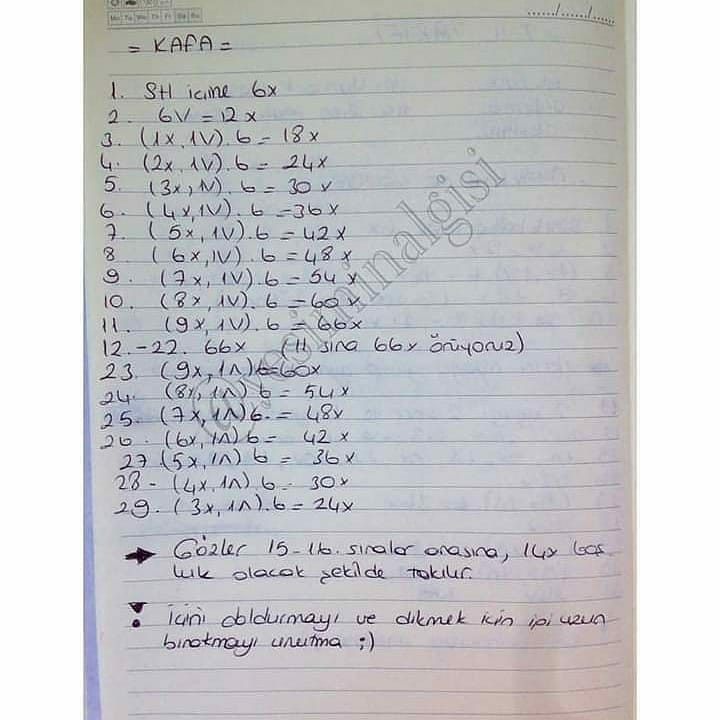 = KAFA =
1. SH içine 6x
2. 6V = 12x
3. (1x, 1V). 6 = 18x
4. (2x, 1V). 6 = 24x
5. (3x, 1V). 6 = 30x
6. (4x, 1V). 6 = 36x
7. (5x, 1V). 6 = 42x
8 (6x, 1V). 6 = 48x
9. (7x, 1V). 6 = 54x
10. (8x, 1V). 6 = 60x
11. (9x, 1V). 6 = 66x
12.-22. 66x (11 sıra 66x örüyoruz)
23. (9x, 1Λ) 6 = 60x
24. (8x, 1Λ) 6 = 54x
25. (7x, 1Λ) 6. = 48x
26. (6x, 1Λ) 6 = 42x
27 (5x, 1Λ) 6 = 36x
28 - (4x, 1Λ). 6 = 30x
29. (3x, 1Λ). 6 = 24x
→ Gözler 15-16. sıralar arasına, 14x boş
luk olacak şekilde takılır.
! İçini doldurmayı ve dikmek için ipi uzun
bırakmayı unutma ;)
@yesiminalgisi